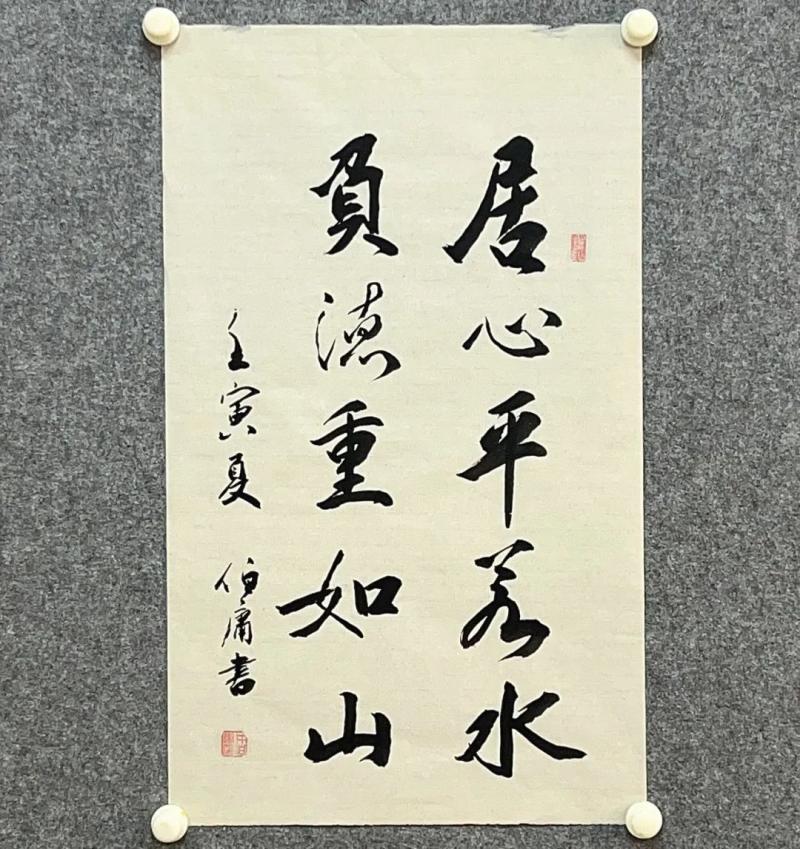 居心平若水
負德重如山
壬寅夏 伯庸書